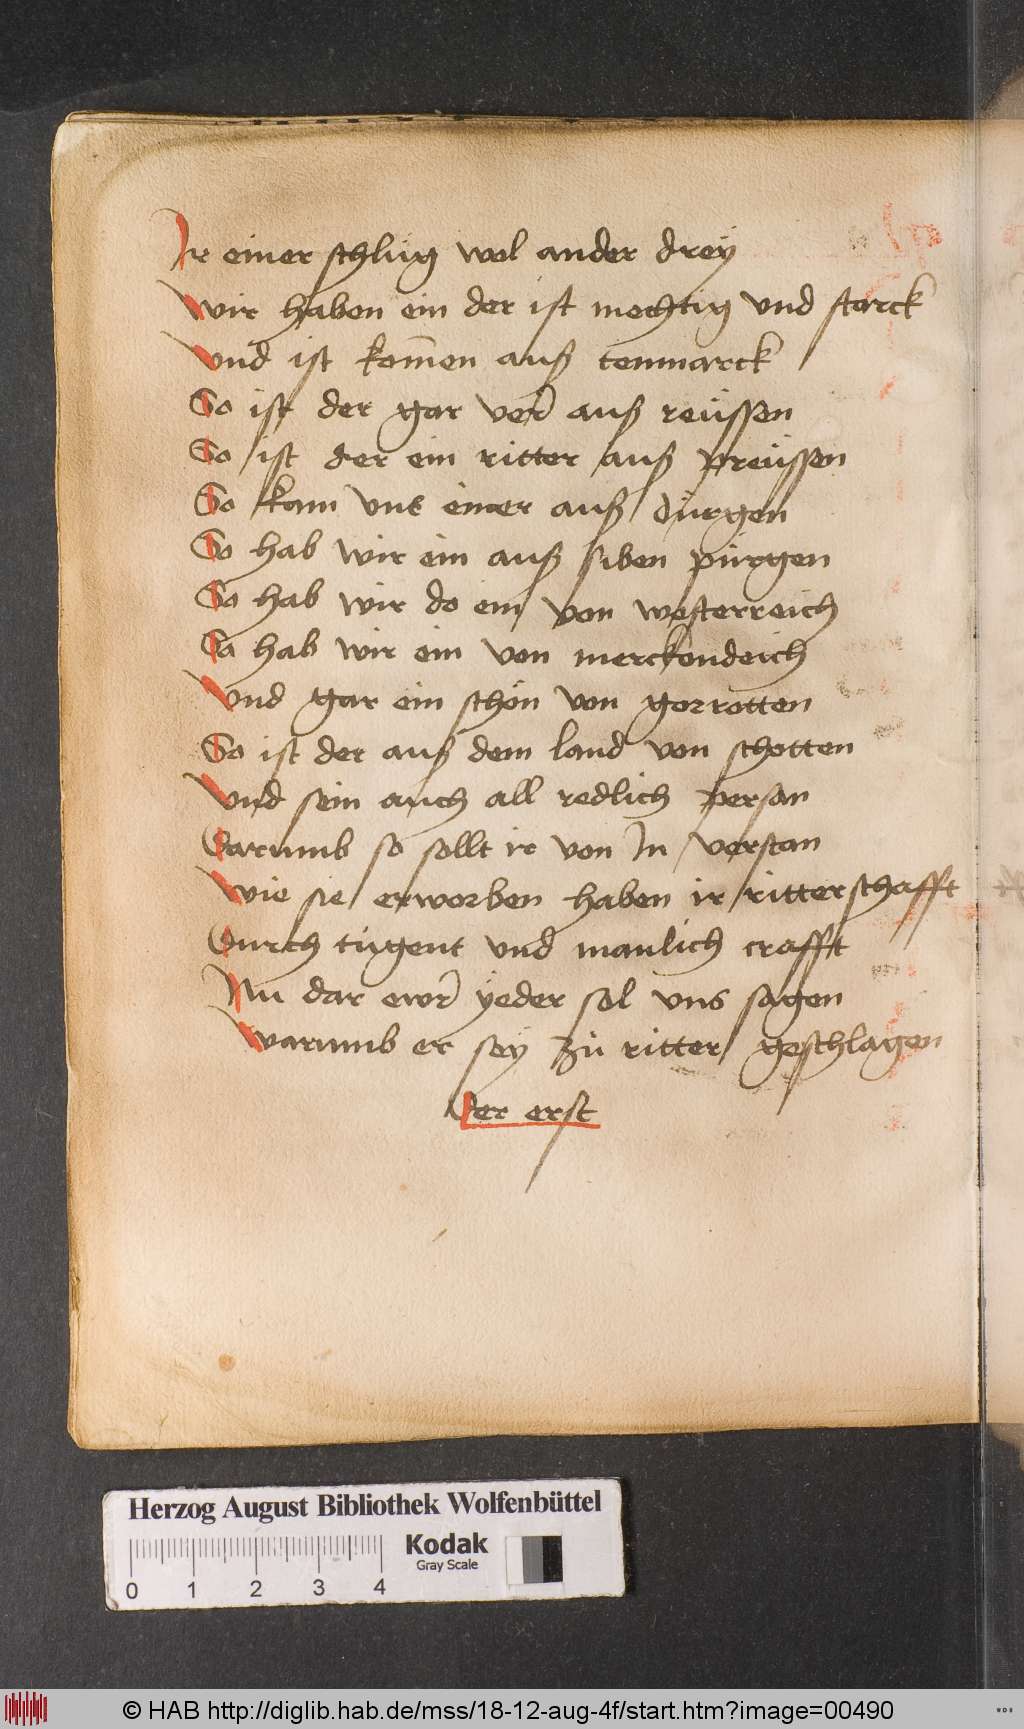 Ir einer schlüg wol ander dreÿ
Wir haben ein der ist mechtig vnd starck
Vnd ist kom̄en auß tenmarck
So ist der gar ver̄ auß reüssen
So ist der ein ritter auß preüssen
So kam vns einer auß Dürgen
So hab wir ein auß siben pürgen
So hab wir do ein von westerreich
So hab wir ein von merckendeich
Vnd gar ein schön von gorrotten
So ist der auß dem land von schotten
Vnd sein auch all redlich person
Darumb so sollt ir von In verstan
Wie sie erworben haben ir ritterschafft
Durch tügent vnd manlich crafft
Nu dar ewr̄ ÿeder sol vns sagen
Warumb er seÿ zü ritter geschlagen
Der erst
Herzog August Bibliothek Wolfenbüttel
Kodak
Gray Scale
0 1 2 3 4
© HAB http://diglib.hab.de/mss/18-12-aug-4f/start.htm?image=00490